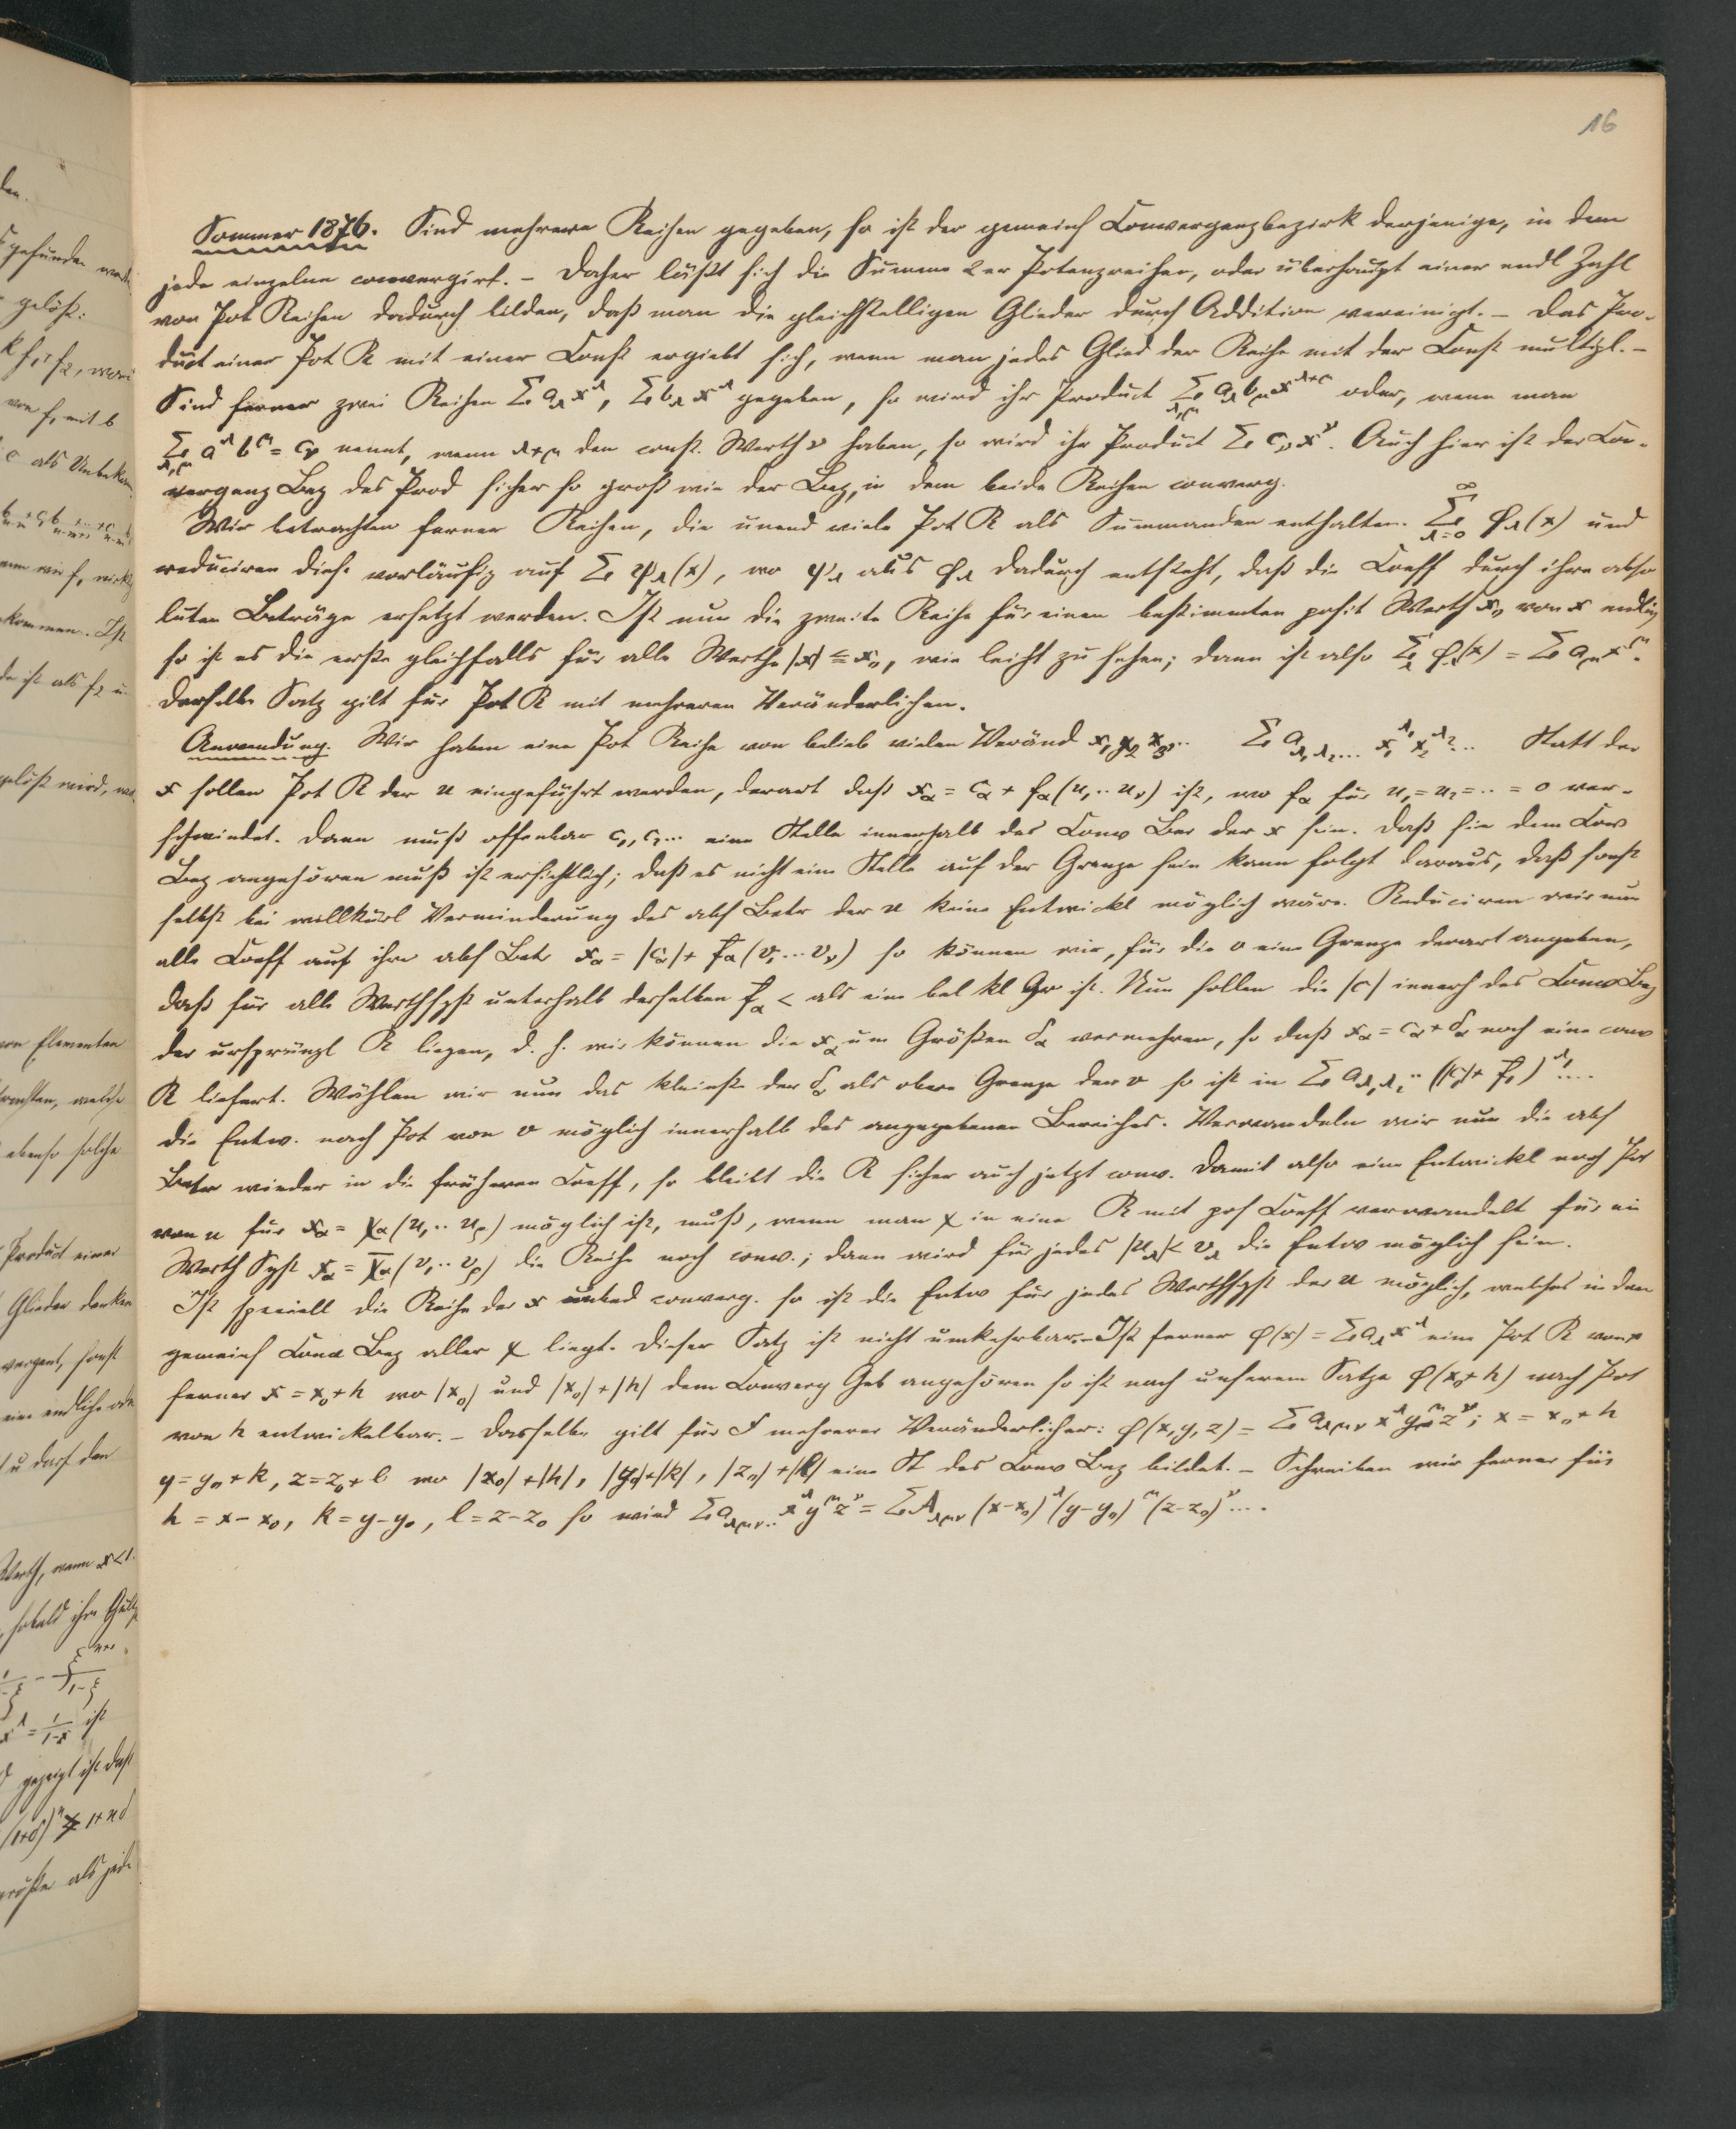 16
Sommer 1876. Sind mehrere Reihen gegeben, so ist der gemeins Convergenzbezirk derjenige, in dem
jede einzelne convergirt. – Daher läßt sich die Summe 2er Potenzreihen, oder überhaupt einer endl Zahl
von Pot Reihen dadurch bilden, daß man die gleichstelligen Glieder durch Addition vereinigt. – Das Pro-
duct einer Pot R mit einer Const ergiebt sich, wenn man jedes Glied der Reihe mit der Const multipl. –
Sind ferner zwei Reihen Σ a_λ x^λ, Σ b_λ x^λ gegeben, so wird ihr Product Σ_{λ,μ} a_λ b_μ x^{λ+μ} oder, wenn man
Σ_{λ,μ} a^λ b^μ = c_ν nennt, wenn λ+μ den const. Werth ν haben, so wird ihr Product Σ c_ν x^ν. Auch hier ist der Con-
vergenz Bez des Prod sicher so groß wie der Bez, in dem beide Reihen converg.
Wir betrachten ferner Reihen, die unend viele Pot R als Summanden enthalten. Σ_{λ=0}^∞ φ_λ(x) und
reduciren diese vorläufig auf Σ ψ_λ(x), wo ψ_λ aus φ_λ dadurch entsteht, daß die Coeff durch ihre abso
luten Beträge ersetzt werden. Ist nun die zweite Reihe für einen bestimmten posit Werth x_0 von x endlich
so ist es die erste gleichfalls für alle Werthe |x| ≤ x_0, wie leicht zu sehen; dann ist also Σ_λ φ_λ(x) = Σ a_μ x^μ.
Derselbe Satz gilt für Pot R mit mehreren Veränderlichen.
Anwendung. Wir haben eine Pot Reihe von belieb vielen Veränd x_1 x_2 x_3 .. Σ a_{λ_1 λ_2 ...} x_1^{λ_1} x_2^{λ_2} ... Statt der
x sollen Pot R der u eingeführt werden, derart daß x_α = c_α + f_α(u_1 .. u_ν) ist, wo f_α für u_1 = u_2 = .. = 0 ver-
schwindet. Dann muß offenbar c_1, c_2 ... eine Stelle innerhalb des Conv Ber der x sein. Daß sie dem Conv
Bez angehören muß ist ersichtlich; daß es nicht eine Stelle auf der Grenze sein kann folgt daraus, daß sonst
selbst bei willkürl Verminderung des abs Betr der u keine Entwickl möglich wäre. Reduciren wir nun
alle Coeff auf ihre abs Betr x_α = |c_α| + f̄_α(v_1 ... v_ν) so können wir, für die v eine Grenze derart angeben,
daß für alle Werthsyst unterhalb derselben f̄_α < als eine bel kl Gr ist. Nun sollen die |c| innerh des Conv Bez
der ursprüngl R liegen, d. h. wir können die x_α um Größen δ_α vermehren, so daß x_α = c_α + δ_α noch eine conv
R liefert. Wählen wir nun das kleinste der δ_α als obere Grenze der v so ist in Σ a_{λ_1 λ_2 ..} (|c_1| + f̄_1)^{λ_1} ....
die Entw. nach Pot von v möglich innerhalb des angegebenen Bereiches. Verwandeln wir nun die abs
Betr wieder in die früheren Coeff, so bleibt die R sicher auch jetzt conv. Damit also eine Entwickl nach Pot
von u für x_α = χ_α(u_1 .. u_ρ) möglich ist, muß, wenn man χ in eine R mit pos Coeff verwandelt für ein
Werth Syst x_α = χ̄_α(v_1 .. v_ρ) die Reihe noch conv.; dann wird für jedes |u_λ| < v_λ die Entw möglich sein.
Ist speciell die Reihe der x unbed converg. so ist die Entw für jedes Werthsyst der u möglich, welches in dem
gemeins Conv Bez aller χ liegt. Dieser Satz ist nicht umkehrbar. – Ist ferner φ(x) = Σ a_λ x^λ eine Pot R von x
ferner x = x_0 + h wo |x_0| und |x_0| + |h| dem Converg Geb angehören so ist nach unserem Satze φ(x_0 + h) nach Pot
von h entwickelbar. – Dasselbe gilt für F mehrerer Veränderlicher: φ(x, y, z) = Σ a_{λμν} x^λ y^μ z^ν; x = x_0 + h
y = y_0 + k, z = z_0 + l wo |x_0| + |h|, |y_0| + |k|, |z_0| + |l| eine St des Conv Bez bildet. – Schreiben wir ferner für
h = x – x_0, k = y – y_0, l = z – z_0 so wird Σ a_{λμν..} x^λ y^μ z^ν = Σ A_{λμν} (x–x_0)^λ (y–y_0)^μ (z–z_0)^ν ....